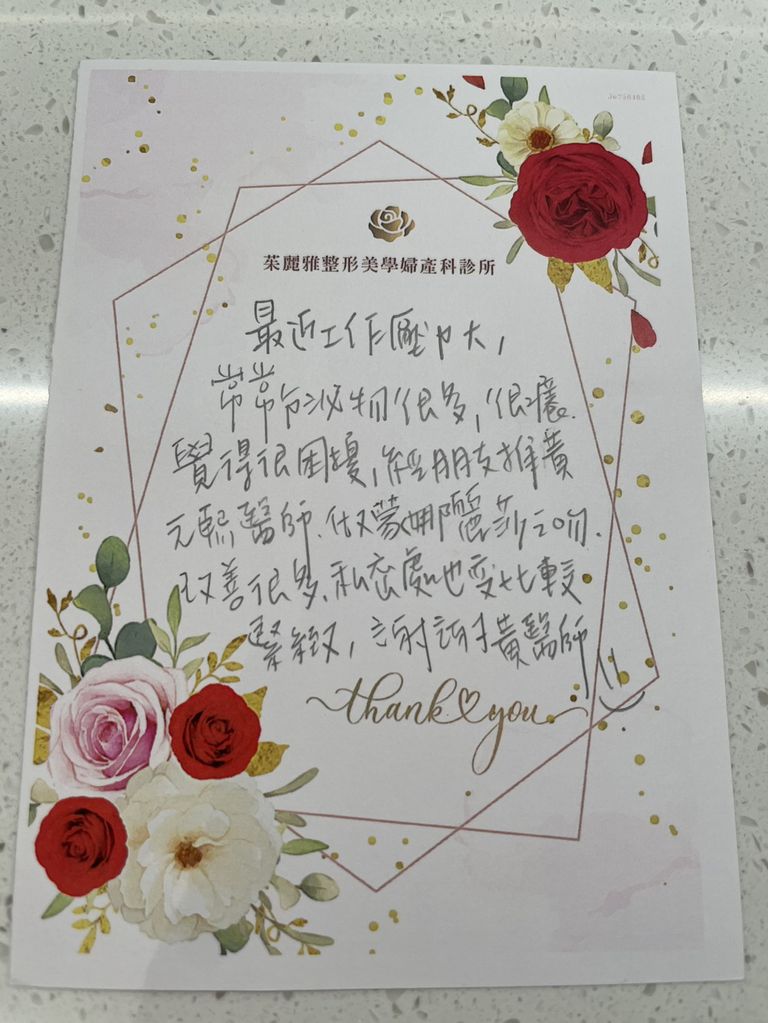 Je750405
茱麗雅整形美學婦產科診所
最近工作壓力大,
常常分泌物很多,很癢.
覺得很困擾,經朋友推黃
元熙醫師.做蒙娜麗莎之吻.
改善很多.私密處也變比較
緊緻,謝謝黃醫師
thank you